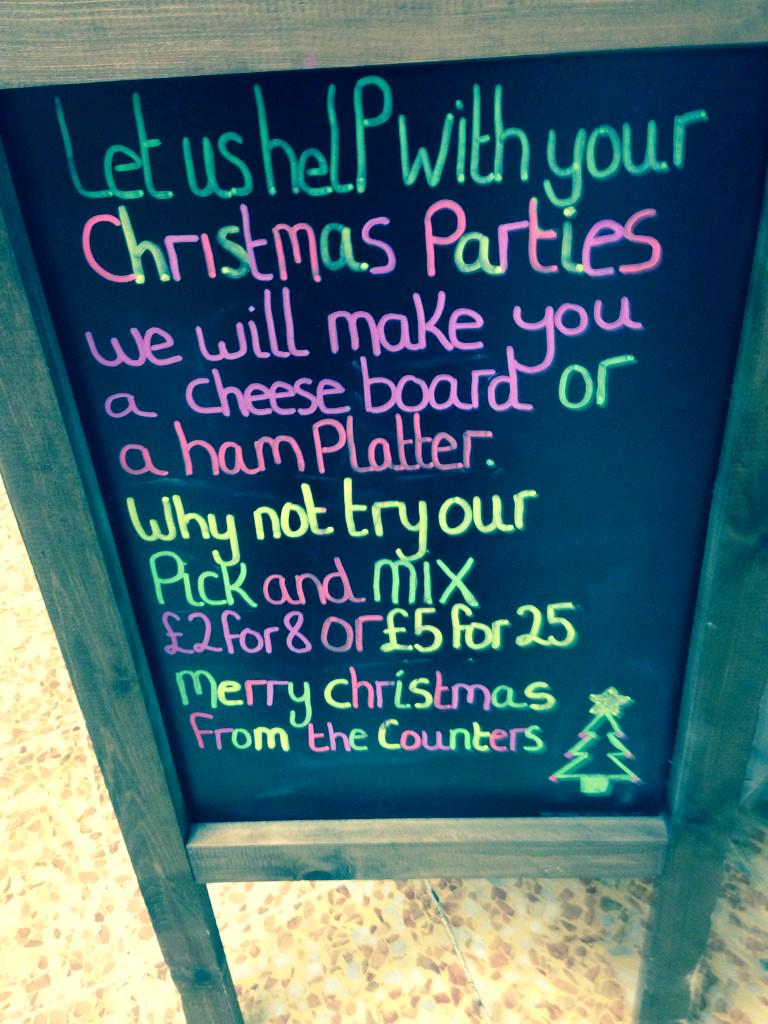 Let us help with your
Christmas Parties
we will make you
a cheese board or
a ham Platter.
Why not try our
Pick and mix
£2 for 8 or £5 for 25
merry christmas
From the Counters